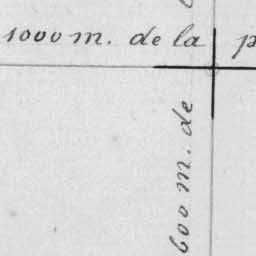 1000 m. de la p
600 m. de